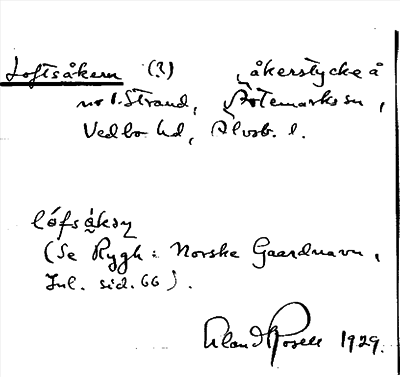 Loftsåkern (?) åkerstycke å
no 1. Strand, Ärtemarks sn,
Vedbo hd, Älvsb. l.
lófsåksṇ
(Se Rygh: Norske Gaardnavn,
Inl. sid. 66).
Erland Rosell 1929.